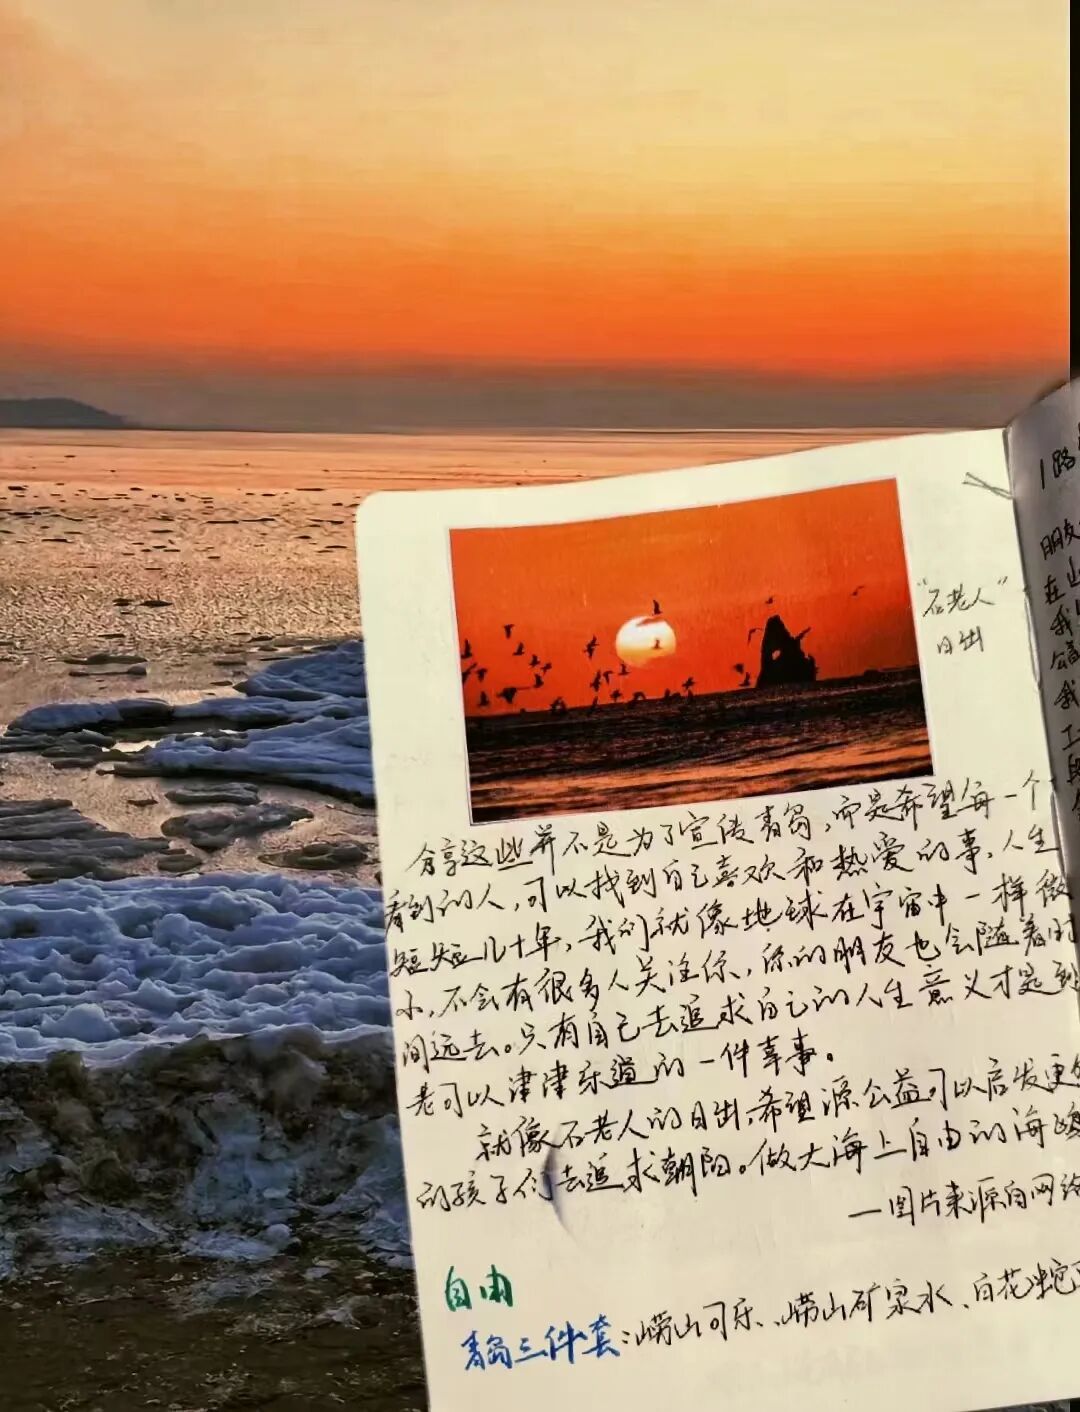 "石老人"
日出
分享这些并不是为了宣传青岛,而是希望每一个
看到的人,可以找到自己喜欢和热爱的事,人生
短短几十年,我们就像地球在宇宙中一样微
小,不会有很多人关注你,你的朋友也会随着时
间远去。只有自己去追求自己的人生意义才是到
老可以津津乐道的一件幸事。
就像石老人的日出,希望源公益可以启发更多
的孩子们去追求朝阳。做大海上自由的海鸥
—图片来源自网络
自由
青岛三件套:崂山可乐、崂山矿泉水、白花蛇
1路
朋友
在山
我
我
工